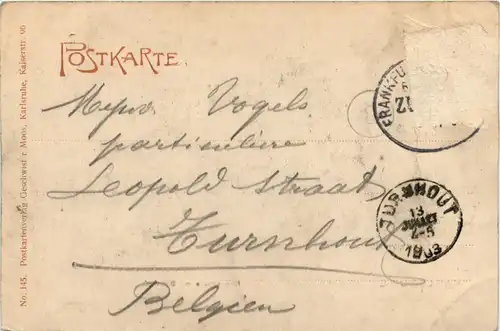 POSTKARTE.
Mejuv. Vogels
particuliere
Leopold Straat
Turnhout
Belgien
FRANKFU
TURNHOUT
13
JUILLET
2-5
1903
No. 145. Postkartenverlag Geschwister Moos, Karlsruhe, Kaiserstr. 96